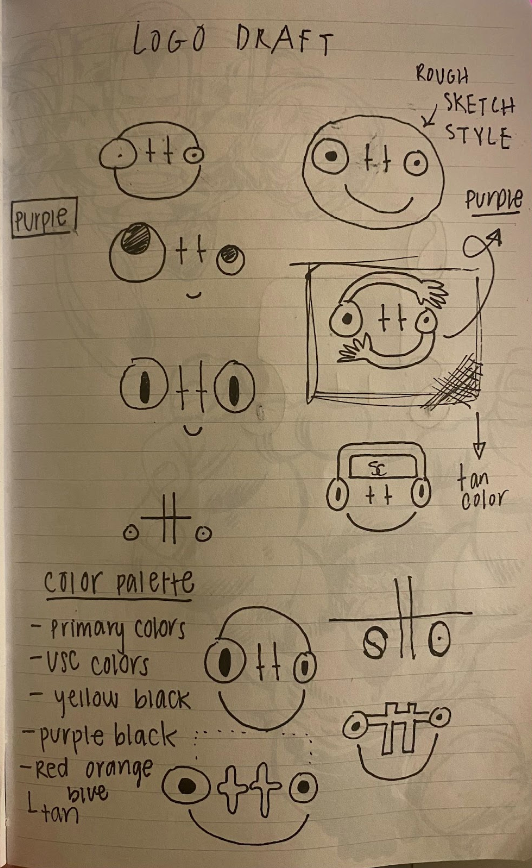 LOGO DRAFT
ROUGH
SKETCH
STYLE
PURPLE
PURPLE
SC
tan
color
COLOR PALETTE
- PRIMARY COLORS
- USC COLORS
- yellow black
- purple black
- Red orange
blue
tan